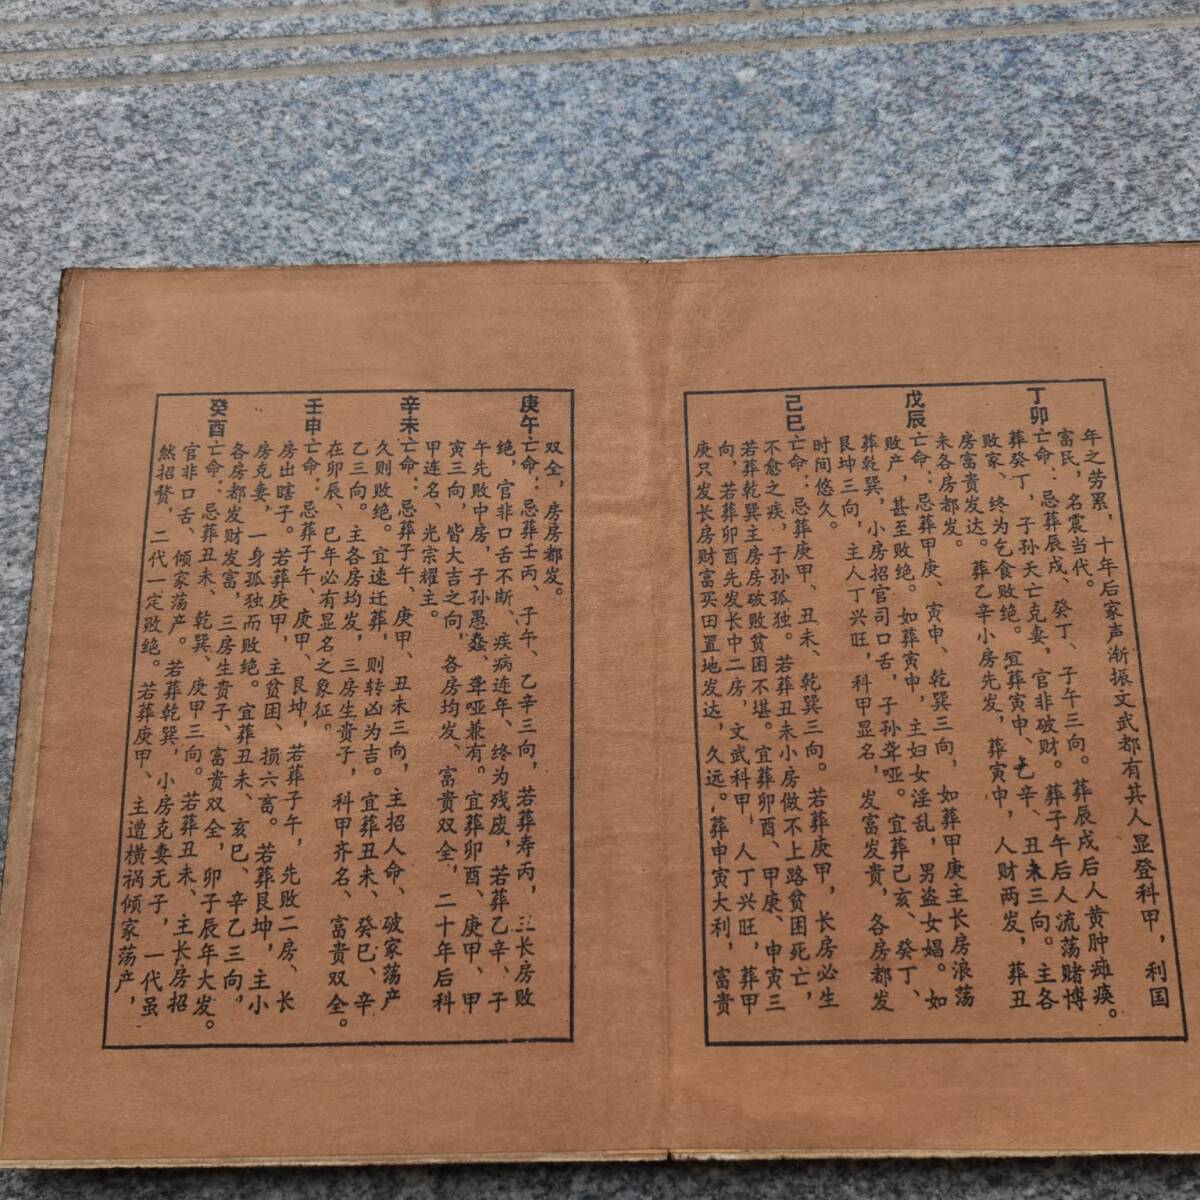 年之劳累，十年后家声渐振文武都有其人显登科甲，利国
富民，名震当代。
丁卯亡命：忌葬辰戌、癸丁、子午三向。葬辰戌后人黄肿瘫痪。
葬癸丁，子孙夭亡克妻，官非破财。葬子午后人流荡赌博
败家、终为乞食败绝。宜葬寅申、乙辛、丑未三向。主各
房富贵发达。葬乙辛小房先发，葬寅申，人财两发，葬丑
未各房都发。
戊辰亡命：忌葬甲庚、寅申、乾巽三向，如葬甲庚主长房浪荡
败产，甚至败绝。如葬寅申，主妇女淫乱，男盗女娼。如
葬乾巽，小房招官司口舌，子孙聋哑。宜葬己亥、癸丁、
艮坤三向，主人丁兴旺，科甲显名，发富发贵，各房都发
时间悠久。
己巳亡命：忌葬庚甲、丑未、乾巽三向。若葬庚甲，长房必生
不愈之疾，子孙孤独。若葬丑未小房做不上路贫困死亡，
若葬乾巽主房房破败贫困不堪。宜葬卯酉、甲庚、申寅三
向，若葬卯酉先发长中二房，文武科甲，人丁兴旺，葬甲
庚只发长房财富买田置地发达，久远。葬申寅大利，富贵
双全，房房都发。
庚午亡命：忌葬壬丙、子午、乙辛三向，若葬寿丙，三长房败
绝，官非口舌不断、疾病连年、终为残废，若葬乙辛、子
午先败中房，子孙愚蠢、聋哑兼有。宜葬卯酉、庚甲、甲
寅三向，皆大吉之向，各房均发、富贵双全，二十年后科
甲连名、光宗耀主。
辛未亡命：忌葬子午、庚甲、丑未三向，主招人命、破家荡产
久则败绝。宜速迁葬，则转凶为吉。宜葬丑未、癸巳、辛
乙三向。主各房均发，三房生贵子，科甲齐名、富贵双全。
在卯辰、巳年必有显名之象征。
壬申亡命：忌葬子午、庚甲、艮坤，若葬子午，先败二房、长
房出瞎子。若葬庚甲，主贫困、损六畜。若葬艮坤，主小
房克妻，一身孤独而败绝。宜葬丑未、亥巳、辛乙三向，
各房都发财发富，三房生贵子、富贵双全，卯子辰年大发。
癸酉亡命：忌葬丑未、乾巽、庚甲三向。若葬丑未、主长房招
官非口舌、倾家荡产。若葬乾巽，小房克妻无子，一代虽
然招赘，二代一定败绝。若葬庚甲、主遭横祸倾家荡产，